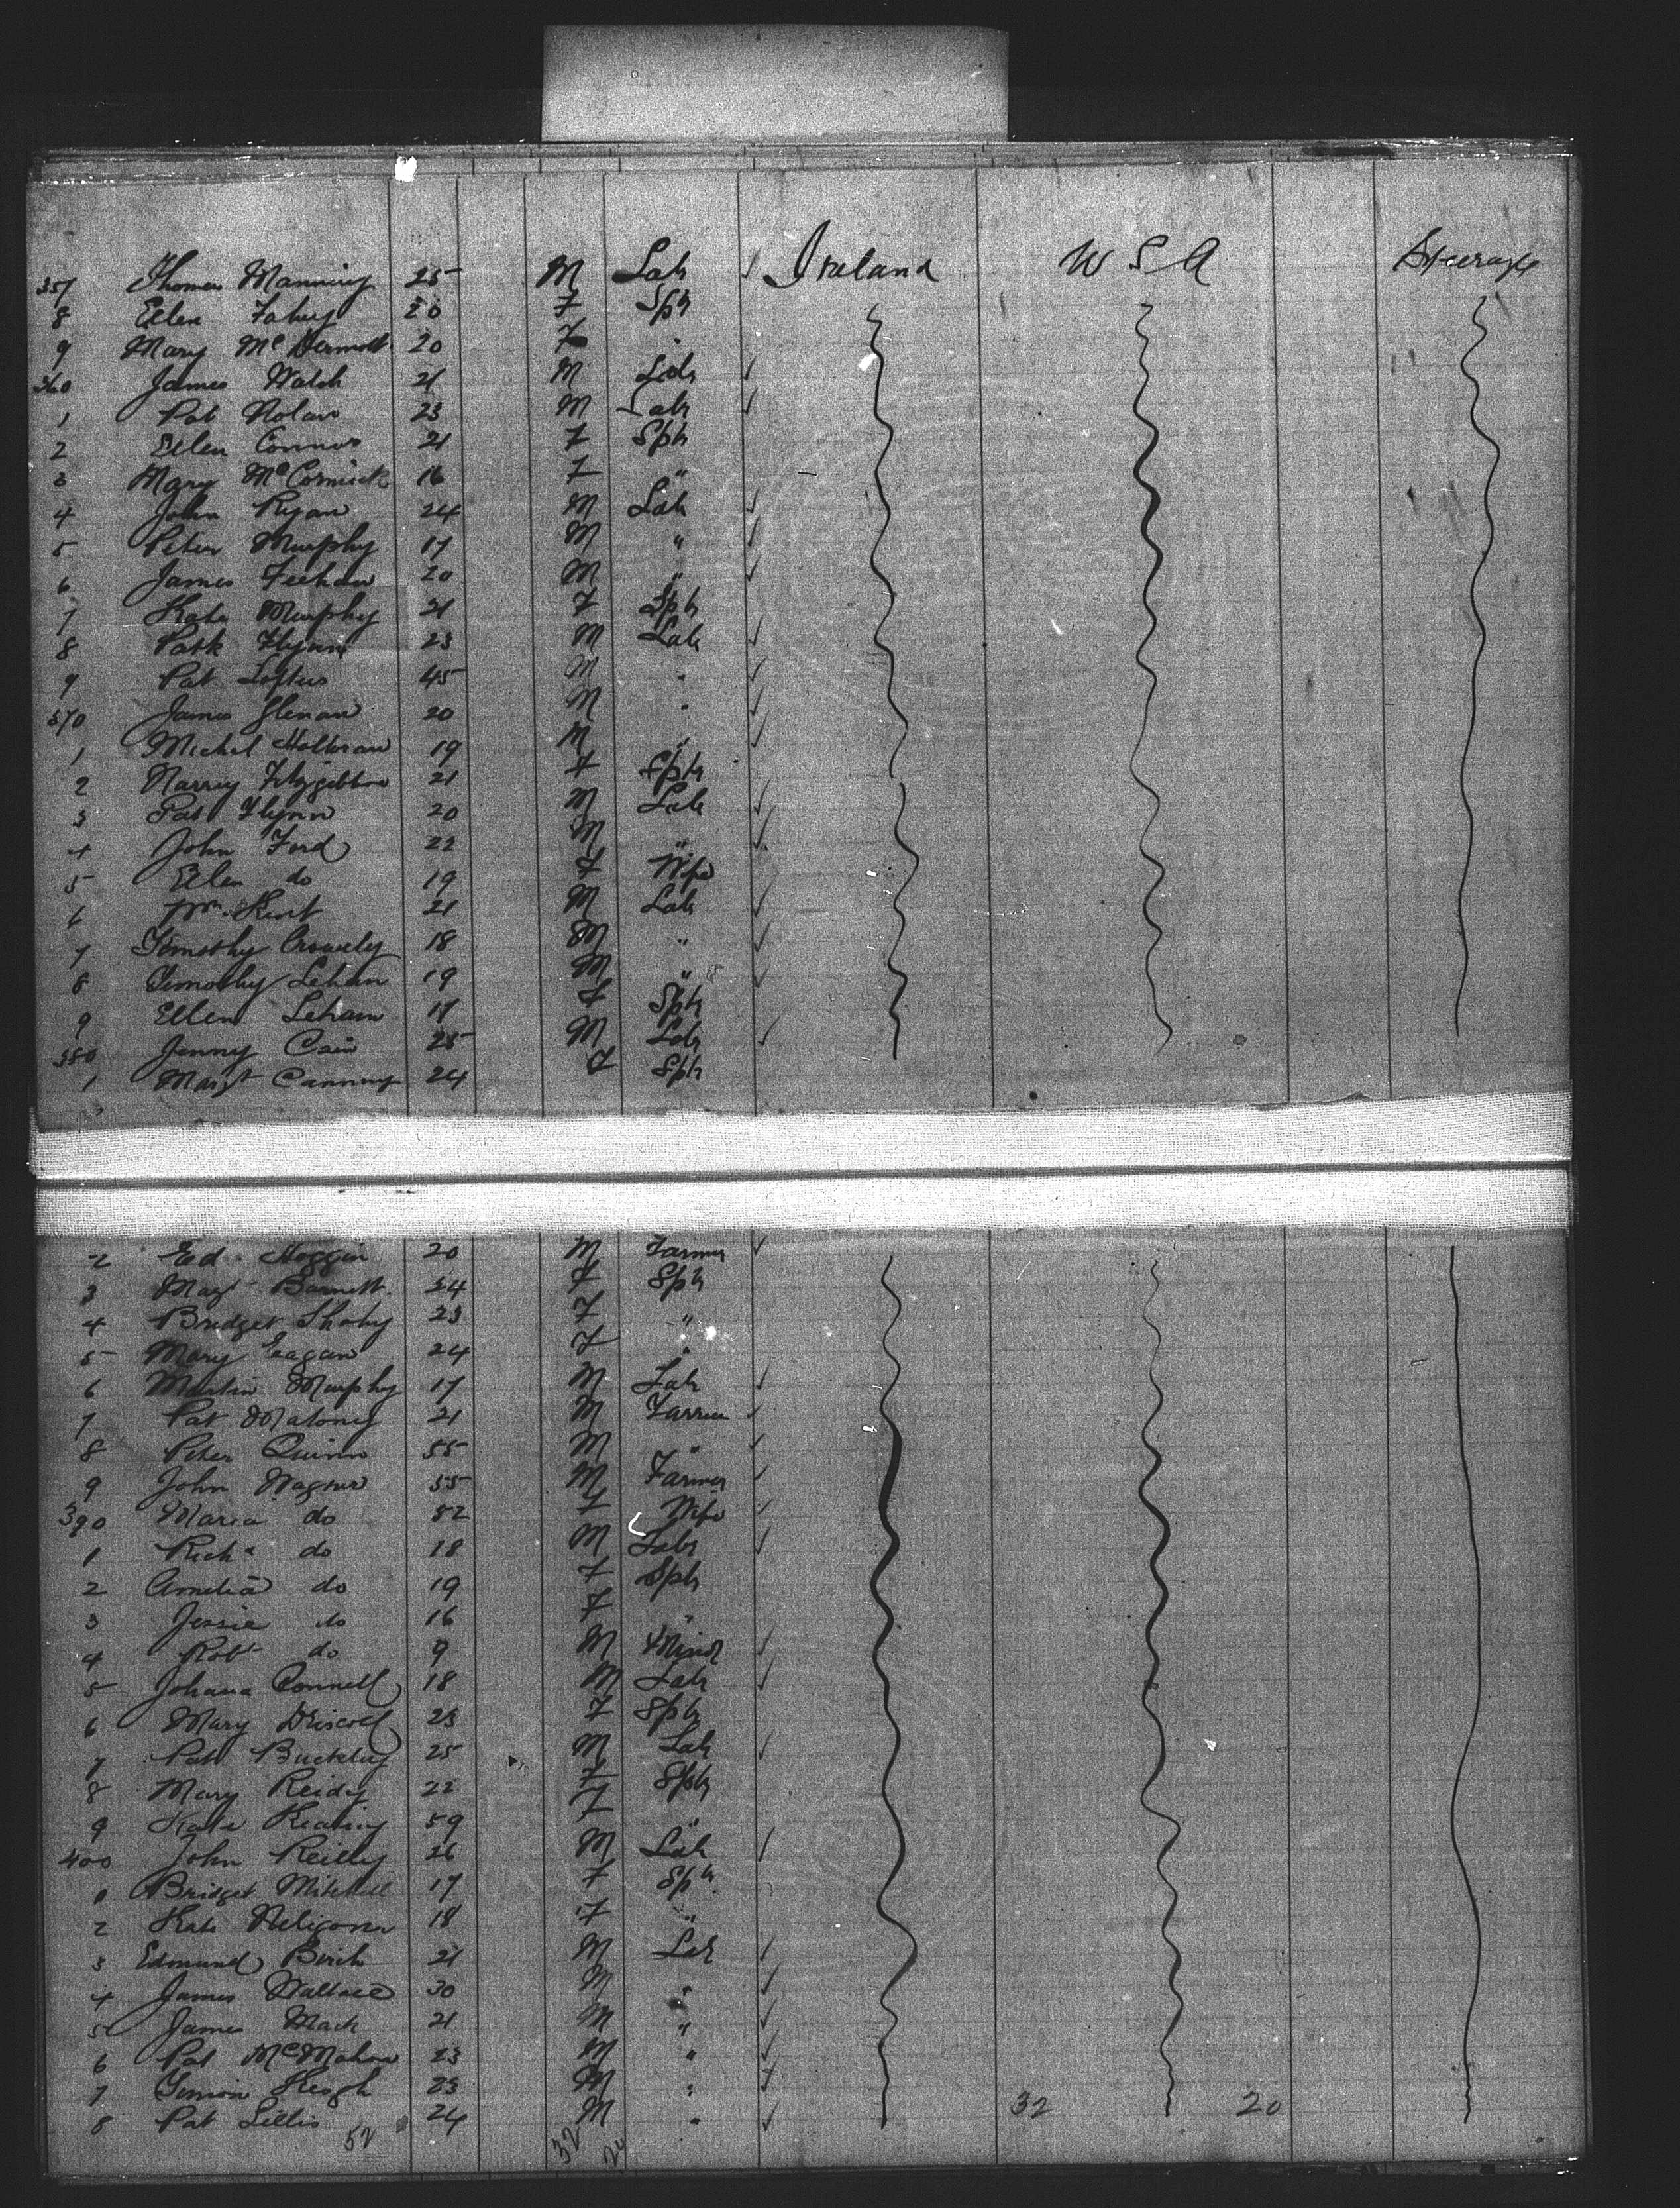 357 Thomas Manning 25 M Lab ✓ Ireland U S A Steerage
8 Ellen Fahey 20 F Sptr
9 Mary McDermott 20 F "
360 James Walsh 21 M Labr ✓
1 Pat Nolan 23 M Labr ✓
2 Ellen Connor 21 F Sptr
3 Mary McCormick 16 F "
4 John Ryan 24 M Labr ✓
5 Peter Murphy 17 M " ✓
6 James Feehan 20 M " ✓
7 Kate Murphy 21 F Sptr
8 Patk Flynn 23 M Labr ✓
9 Pat Loftus 45 M " ✓
370 James Glenan 20 M " ✓
1 Michel Holloran 19 M " ✓
2 Fitzgibbon 21 F Sptr
3 Pat Flynn 20 M Labr ✓
4 John Ford 22 M " ✓
5 Ellen do 19 F Wife
6 Wm Kent 21 M Labr ✓
7 Timothy Crowely 18 M " ✓
8 Timothy Lehan 19 M " ✓
9 Ellen Lehan 17 F Sptr
380 Jenny Cain 25 M Labr ✓
1 Margt Canning 24 F Sptr
2 Ed. Hoggin 20 M Farmer ✓
3 Margt Barnett 24 F Sptr
4 Bridget 23 F "
5 Mary Eagan 24 F "
6 Martin Murphy 17 M Labr ✓
7 Pat Maloney 21 M Farmer ✓
8 Peter Quinn 55 M " ✓
9 John Wagner 55 M Farmer ✓
390 Maria do 52 F Wife
1 Richd do 18 M Labr ✓
2 Amelia do 19 F Sptr
3 Jessie do 16 F "
4 Robt do 9 M ✓
5 Johana Connell 18 M Labr ✓
6 Mary Driscoll 23 F Sptr
7 Pat Buckley 25 M Labr ✓
8 Mary Reidy 22 F Sptr
9 Kate Keating 59 F "
400 John Reilly 26 M Labr ✓
1 Bridget Mitchell 17 F Sptr
2 Kate Neligan 18 F "
3 Edmund Birch 21 M Labr ✓
4 James Wallace 30 M " ✓
5 James Mack 21 M " ✓
6 Pat McMahon 23 M " ✓
7 Simon Keogh 23 M " ✓
8 Pat Lillis 24 M " ✓ 32 20
52 32 20